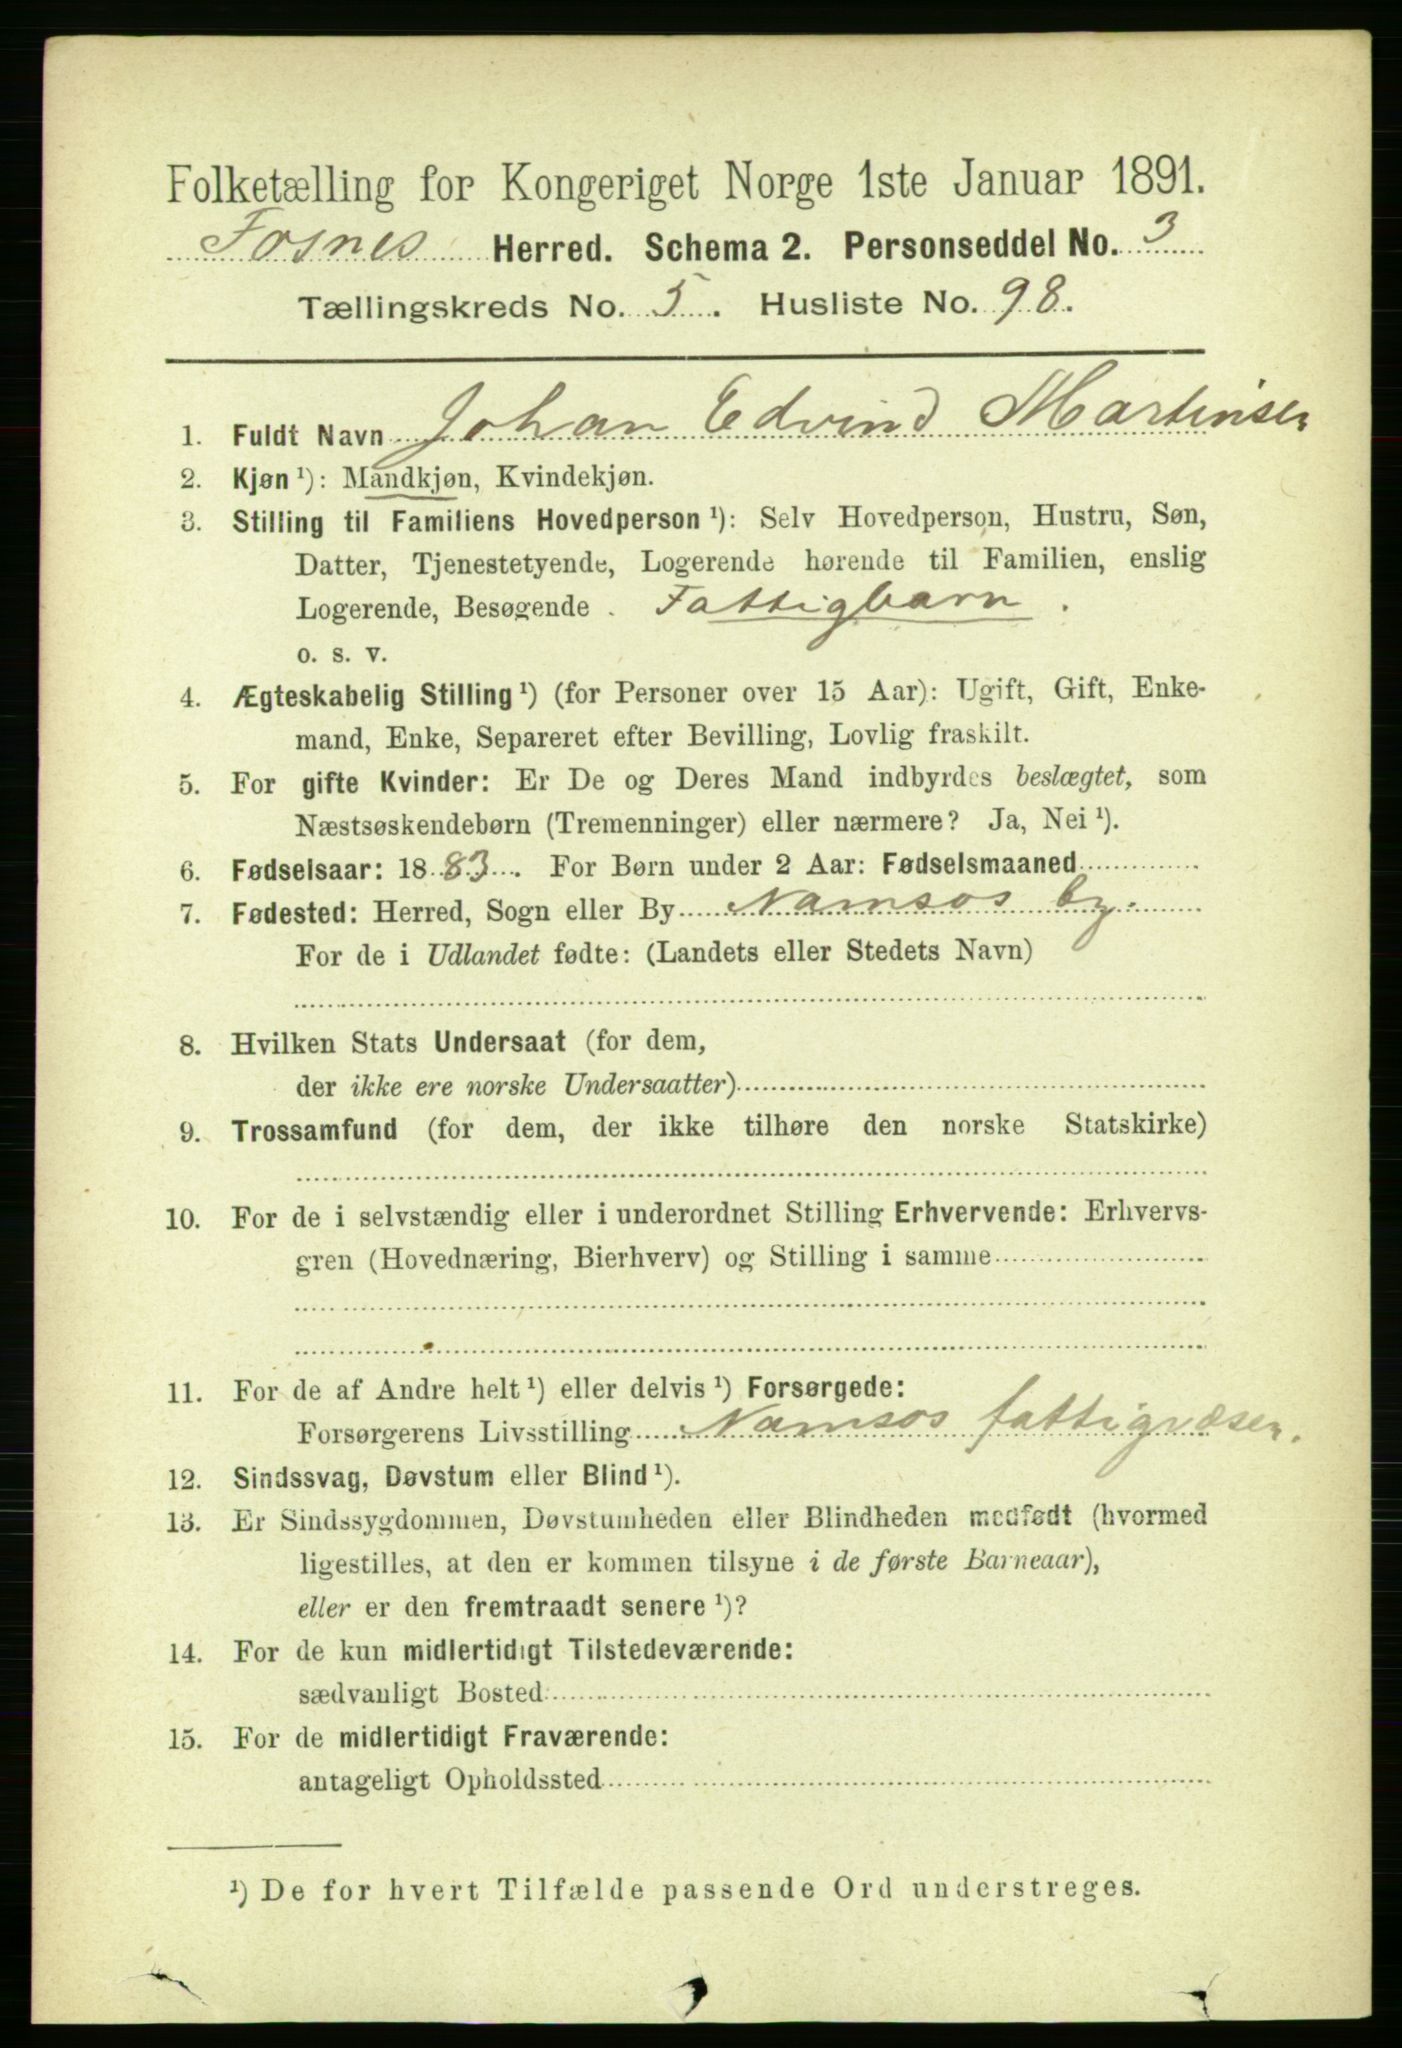 Folketælling for Kongeriget Norge 1ste Januar 1891.
Fosnes Herred. Schema 2. Personseddel No. 3
Tællingskreds No. 5. Husliste No. 98.
1. Fuldt Navn Johan Edvind Martinsen
2. Kjøn ¹): Mandkjøn, Kvindekjøn.
3. Stilling til Familiens Hovedperson ¹): Selv Hovedperson, Hustru, Søn,
Datter, Tjenestetyende, Logerende hørende til Familien, enslig
Logerende, Besøgende . Fattigbarn .
o. s. v.
4. Ægteskabelig Stilling ¹) (for Personer over 15 Aar): Ugift, Gift, Enke-
mand, Enke, Separeret efter Bevilling, Lovlig fraskilt.
5. For gifte Kvinder: Er De og Deres Mand indbyrdes beslægtet, som
Næstsøskendebørn (Tremenninger) eller nærmere? Ja, Nei ¹).
6. Fødselsaar: 1883. For Børn under 2 Aar: Fødselsmaaned
7. Fødested: Herred, Sogn eller By Namsos by.
For de i Udlandet fødte: (Landets eller Stedets Navn)
8. Hvilken Stats Undersaat (for dem,
der ikke ere norske Undersaatter)
9. Trossamfund (for dem, der ikke tilhøre den norske Statskirke)
10. For de i selvstændig eller i underordnet Stilling Erhvervende: Erhvervs-
gren (Hovednæring, Bierhverv) og Stilling i samme
11. For de af Andre helt ¹) eller delvis ¹) Forsørgede:
Forsørgerens Livsstilling Namsos fattigvæsen.
12. Sindssvag, Døvstum eller Blind ¹).
13. Er Sindssygdommen, Døvstumheden eller Blindheden medfødt (hvormed
ligestilles, at den er kommen tilsyne i de første Barneaar),
eller er den fremtraadt senere ¹)?
14. For de kun midlertidigt Tilstedeværende:
sædvanligt Bosted
15. For de midlertidigt Fraværende:
antageligt Opholdssted
¹) De for hvert Tilfælde passende Ord understreges.